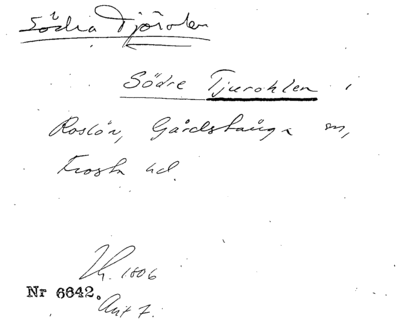 Södra Tjörolen
Södre Tjurohlen i
Roslön, Gårdstånga sn,
Frosta hd.
1806
Nr 6642. Akt 7.